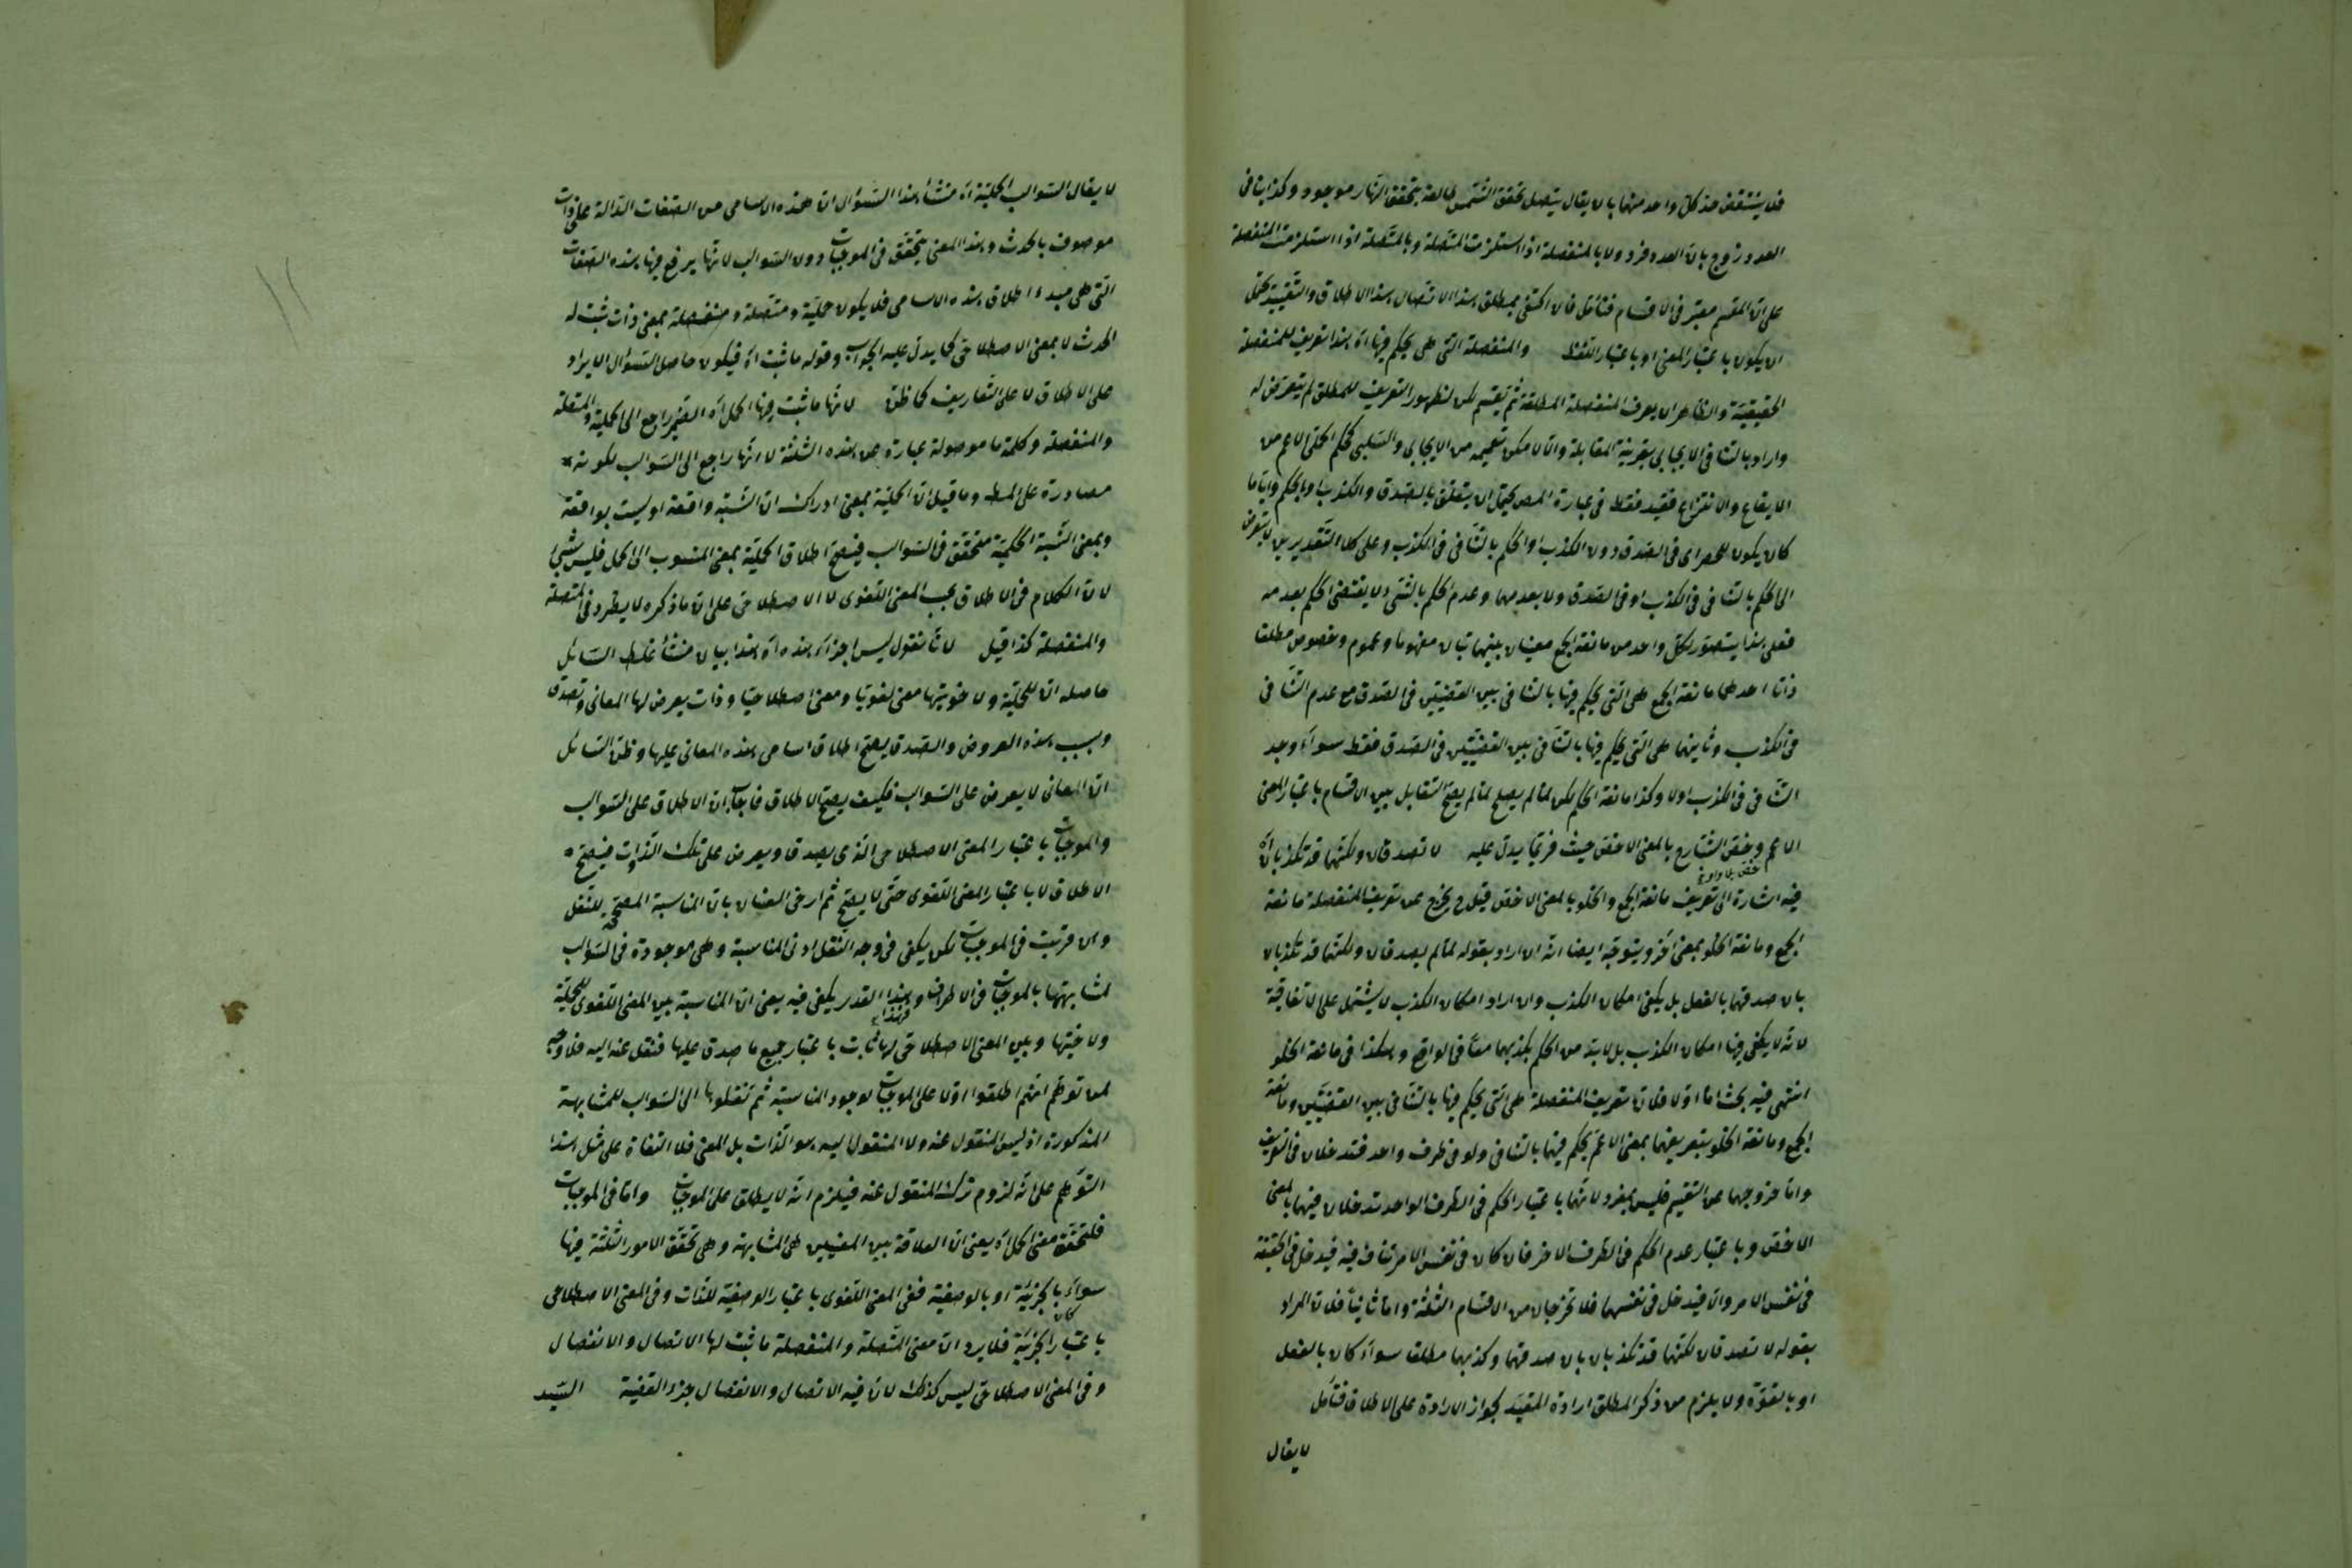 فلا ينتقض حد كل واحد منهما بان لا يقال يتصل تحقق الشمس طالعة بتحقق النهار موجود وكذا ينافى
العدد زوج بان العدد فرد ولا بالمنفصلة اذا استلزمت المتصلة وبالمتصلة اذا استلزمت المنفصلة
على ان المقسم معتبر فى الاقسام فتأمل فان اكتفى بمطلق هذا الاتصال هذا الاطلاق والتقييد يحتمل
ان يكون باعتبار المعنى او باعتبار اللفظ والمنفصلة التى هى يحكم فيها اه هذا تعريف للمنفصلة
الحقيقية والظاهر ان يعرف المنفصلة المطلقة ثم يقسم لكن لظهور التعريف للمطلق لم يتعرض له
واراد بالتنافى الايجابى بقرينة المقابلة والا لامكن تعميمه من الايجابى والسلبى كحكم الحملى الاعم من
الايقاع والانتزاع فقيد فقط فى عبارة المص يحتمل ان يتعلق بالصدق والكذب او بالحكم وايا ما
كان يكون للحصر اى فى الصدق دون الكذب او الحكم بالتنافى فى الكذب وعلى كلا التقديرين لا يتعرض
الى الحكم بالتنافى فى الكذب او فى الصدق ولا بعدمهما وعدم الحكم بالشئ لا يقتضى الحكم بعدمه
فعلى هذا يتصور لكل واحد من مانعة الجمع معنيان بينهما تباين مفهوما وعموم وخصوص مطلقا
ذاتا احدهما مانعة الجمع هى التى يحكم فيها بالتنافى بين القضيتين فى الصدق مع عدم التنافى
فى الكذب وثانيهما هى التى يحكم فيها بالتنافى بين القضيتين فى الصدق فقط سواء وجد
التنافى فى الكذب اولا وكذا مانعة الخلو لكن لما لم يصلح لما لم يصح التقابل بين الاقسام باعتبار المعنى
الاعم وخص الشارح بالمعنى الاخص حيث يدل عليه لا تصدقان ولكنهما قد تكذبان اه
فيه اشارة الى تعريف مانعة الجمع والخلو بالمعنى الاخص قيل يخرج عن تعريف المنفصلة مانعة
الجمع ومانعة الخلو بمعنى آخر ويتوجه ايضا انه ان اراد بقوله لما لم يصدقان ولكنهما قد تكذبان
بان صدقهما بالفعل بل يكفى امكان الكذب وان اراد امكان الكذب لا يشتمل على الاتفاقية
لانه لا يكفى فيها امكان الكذب بل لابد من الحكم بكذبهما معا فى الواقع وهكذا فى مانعة الخلو
انتهى فيه بحث اما اولا فلان تعريف المنفصلة هى التى يحكم فيها بالتنافى بين القضيتين ومانعة
الجمع ومانعة الخلو بتعريفهما بمعنى الاعم يحكم فيهما بالتنافى ولو فى طرف واحد فتدخلان فى التعريف
واما خروجهما عن التقسيم فليس بمضر ولانهما باعتبار الحكم فى الطرف الواحد تدخلان فيهما بالمعنى
الاخص وباعتبار عدم الحكم فى الطرف الاخر فان كان فى نفس الامر تناف فيه فيدخل فى الحقيقة
فى نفس الامر والا فيدخل فى نفسهما فلا تخرجان من الاقسام الثلثة واما ثانيا فلان المراد
بقوله لا تصدقان لكنهما قد تكذبان بان صدقهما وكذبهما مطلقا سواء كان بالفعل
او بالقوة ولا يلزم من ذكر المطلق ارادة المقيد لجواز الارادة على الاطلاق فتأمل
لا يقال
لا يقال السوالب الحملية اه منشأ هذا السؤال ان هذه الاسامى من الصفات الدالة على ذات
موصوف بالحدث وهذا المعنى يتحقق فى الموجبات دون السوالب لانها يرفع فيها هذه الصفات
التى هى مبدء اطلاق هذه الاسامى فلا يكون حملية ومتصلة ومنفصلة بمعنى ذات ثبت له
الحدث لا بمعنى الاصطلاحى كما يدل عليه الجواب وقوله ما ثبت اه فيكون حاصل السؤال الايراد
على الاطلاق لا على التعاريف كما ظن لانها ما ثبت فيها الحمل اه الضمير راجع الى الحملية والمتصلة
والمنفصلة وكلمة ما موصولة عبارة عن هذه الثلثة لا انها راجع الى السوالب لكونه
مصادرة على المط وما قيل ان الحملية بمعنى ادراك ان النسبة واقعة او ليست بواقعة
وبمعنى النسبة الحكمية متحقق فى السوالب فيصح اطلاق الحملية بمعنى المنسوب الى الحمل فليس بشئ
لان الكلام فى الاطلاق بحسب المعنى اللغوى لا الاصطلاحى على ان ما ذكره لا يطرد فى المتصلة
والمنفصلة كذا قيل لانا نقول ليس اجراء هذه اه هذا بيان منشأ غلط السائل
حاصله ان للحملية ولاخويتها معنى لغويا ومعنى اصطلاحيا وذات يعرض لها المعانى وتصدق
وبسبب هذه العروض والصدق يصح اطلاق اسامى هذه المعانى عليها وظن السائل
ان المعانى لا يعرض على السوالب فكيف يصح الاطلاق فاجاب ان الاطلاق على السوالب
والموجبات باعتبار المعنى الاصطلاحى الذى يصدق ويعرض على تلك الذوات فيصح
الاطلاق لا باعتبار المعنى اللغوى حتى لا يصح ثم ارخى العنان بان المناسبة المصححة للنقل
وان قريبت فى الموجبات لكن يكفى فى وجه النقل ادنى المناسبة وهى موجودة فى السوالب
لمشابهتها بالموجبات فى الاطراف وهذا القدر يكفى فيه يعنى ان المناسبة بين المعنى اللغوى للحملية
ولاختيها وبين المعنى الاصطلاحى لها ثابت باعتبار جميع ما صدق عليها فنقل عنه اليه فلا وجه
لمن توهم انهم اطلقوا اولا على الموجبات لوجود المناسبة ثم نقلوها الى السوالب للمشابهة
المذكورة اذ ليس المنقول عنه ولا المنقول اليه هو الذات بل المعنى فلا التفات على مثل هذا
التوهم على انه لزوم ترك المنقول عنه فيلزم انه لا يطلق على الموجبات واما فى الموجبات
فلتحقق معنى الحمل اه يعنى ان العلاقة بين المعنيين هى المشابهة وهى تحقق الامور الثلثة فيها
سواء كان بالجزئية او بالوصفية ففى المعنى اللغوى باعتبار الوصفية للذات وفى المعنى الاصطلاحى
باعتبار الجزئية فلا يرد ان معنى المتصلة والمنفصلة ما ثبت لها الاتصال والانفصال
وفى المعنى الاصطلاحى ليس كذلك لان فيه الاتصال والانفصال جزء القضية السيد